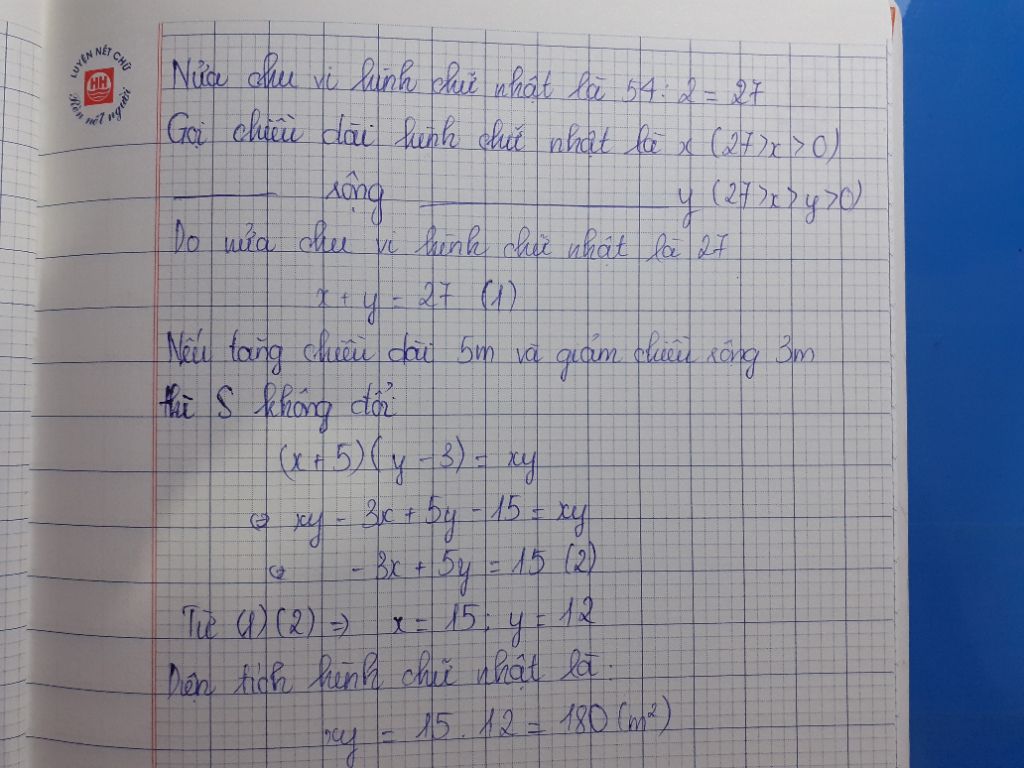 LUYỆN NÉT CHỮ
HH
Rèn nết người
Nửa chu vi hình chữ nhật là 54 : 2 = 27
Gọi chiều dài hình chữ nhật là x (27>x>0)
rộng y (27>x>y>0)
Do nửa chu vi hình chữ nhật là 27
x + y = 27 (1)
Nếu tăng chiều dài 5m và giảm chiều rộng 3m
thì S không đổi
(x + 5)(y - 3) = xy
⇔ xy - 3x + 5y - 15 = xy
⇔ - 3x + 5y = 15 (2)
Từ (1) (2) ⇒ x = 15 ; y = 12
Diện tích hình chữ nhật là :
xy = 15 . 12 = 180 (m²)